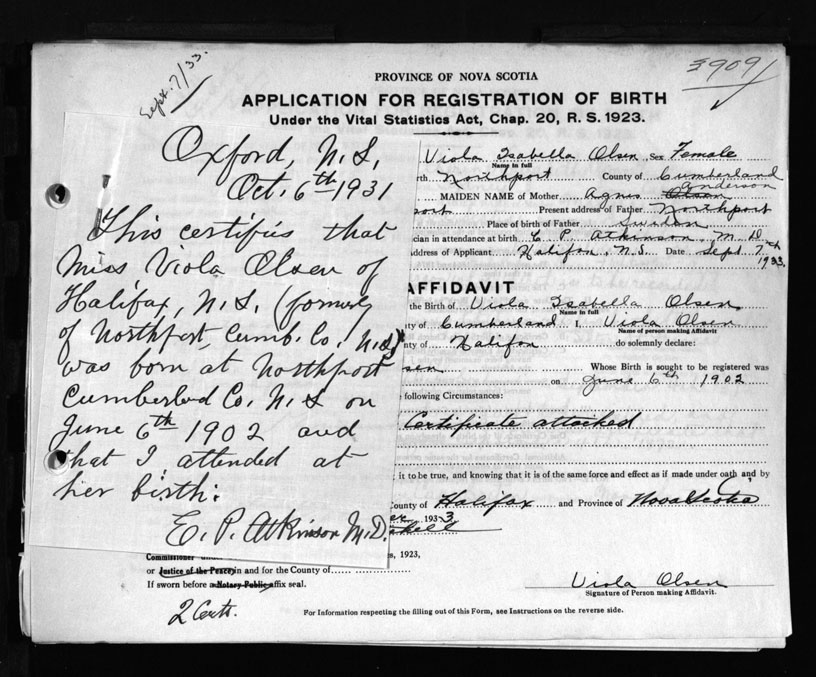 Sept. 7/33.
3909
PROVINCE OF NOVA SCOTIA
APPLICATION FOR REGISTRATION OF BIRTH
Under the Vital Statistics Act, Chap. 20, R. S. 1923.
Oxford, N.S.
Oct. 6th 1931
This certifies that
Miss Viola Olsen of
Halifax, N.S. (formerly
of Northport, Cumb. Co. N.S.)
was born at Northport
Cumberland Co. N.S on
June 6th 1902 and
that I attended at
her birth.
E. P. Atkinson M.D.
Viola Isabella Olsen Sex Female
Name in full
rth Northport County of Cumberland
Anderson
MAIDEN NAME of Mother Agnes Olsen
port Present address of Father Northport
Place of birth of Father Sweden
cian in attendance at birth E. P. Atkinson, M.D.
ddress of Applicant Halifax, N.S. Date Sept 7th
1933.
AFFIDAVIT
the Birth of Viola Isabella Olsen
Name in full
ty of Cumberland I, Viola Olsen
Name of person making Affidavit
nty of Halifax do solemnly declare:
sen Whose Birth is sought to be registered was
on June 6th 1902
e following Circumstances:
Certificate attached
it to be true, and knowing that it is of the same force and effect as if made under oath and by
County of Halifax and Province of Nova Scotia
er 1933
Commissioner under s, 1923,
or Justice of the Peace in and for the County of
If sworn before a Notary Public affix seal.
Viola Olsen
Signature of Person making Affidavit.
2 Certs.
For Information respecting the filling out of this Form, see Instructions on the reverse side.